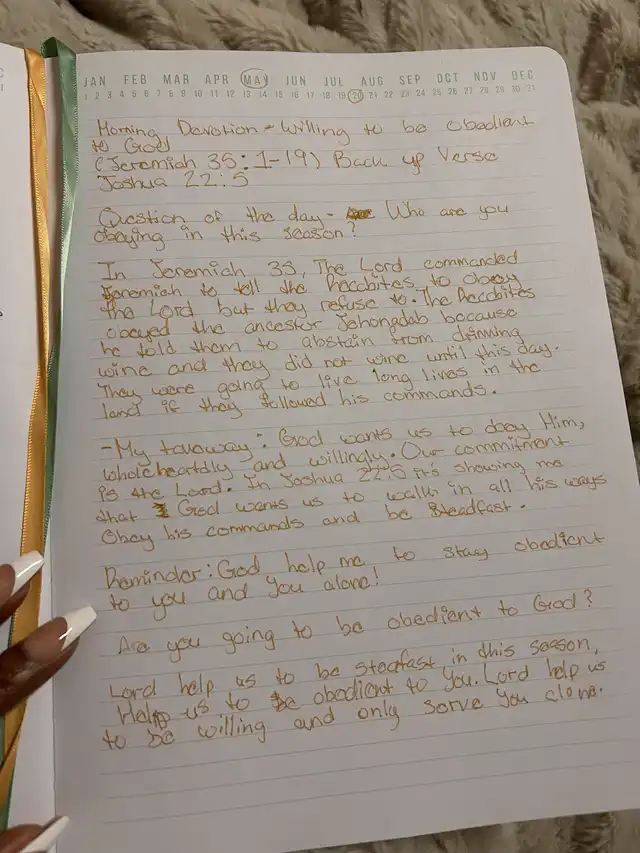 JAN FEB MAR APR MAY JUN JUL AUG SEP OCT NOV DEC
1 2 3 4 5 6 7 8 9 10 11 12 13 14 15 16 17 18 19 20 21 22 23 24 25 26 27 28 29 30 31
Morning Devotion - Willing to be obedient
to God
(Jeremiah 35:1-19) Back up Verse
Joshua 22:5
Question of the day - Who are you
obeying in this season?
In Jeremiah 35, The Lord commanded
Jeremiah to tell the Recabites to obey
the Lord but they refuse to. The Recabites
obeyed the ancestor Jehongdab because
he told them to abstain from drinning
wine and they did not wine until this day.
They were going to live long lives in the
land if they followed his commands.
- My takeway: God wants us to obey Him,
wholeheartdly and willingly. Our commitment
is the Lord. In Joshua 22:5 it's showing me
that God wants us to walk in all his ways
Obey his commands and be Steadfast.
Reminder: God help me to stay obedient
to you and You alone!
Are you going to be obedient to God?
Lord help us to be steafast in this season,
Help us to be obedient to You. Lord help us
to be willing and only serve You alone.